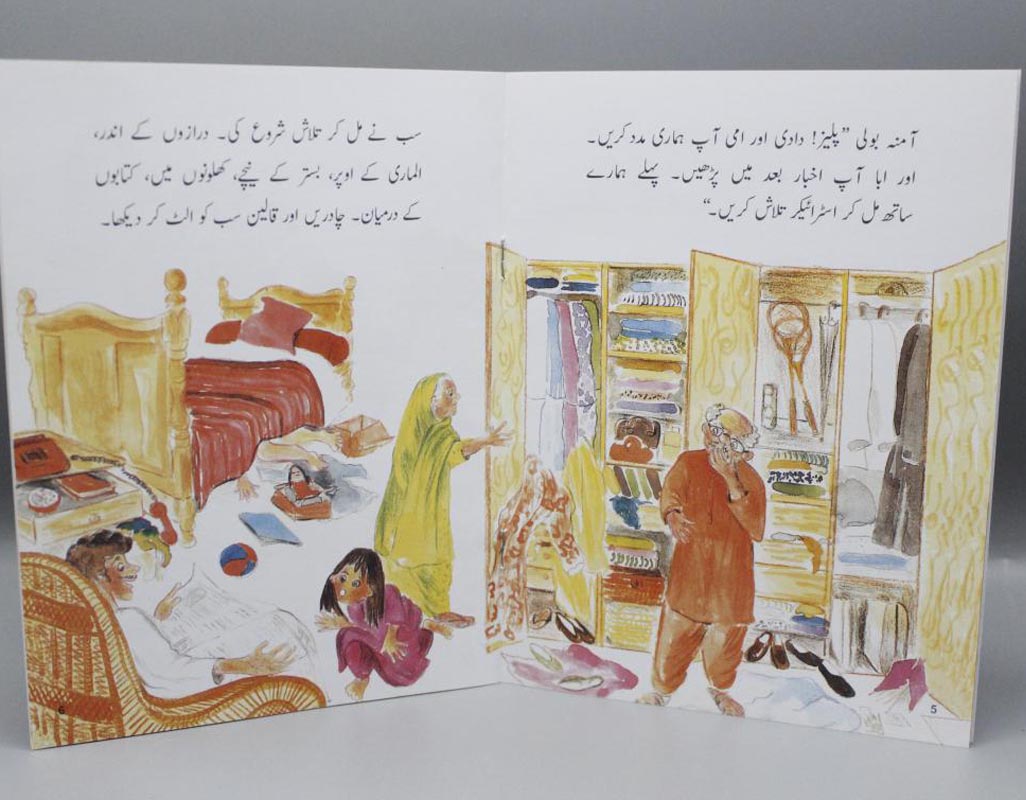 آمنہ بولی ”پلیز! دادی اور امی آپ ہماری مدد کریں۔
اور ابا آپ اخبار بعد میں پڑھیں۔ پہلے ہمارے
ساتھ مل کر اسٹراٹیکر تلاش کریں۔“
5
سب نے مل کر تلاش شروع کی۔ درازوں کے اندر،
الماری کے اوپر، بستر کے نیچے، کھلونوں میں، کتابوں
کے درمیان۔ چادریں اور قالین سب کو الٹ کر دیکھا۔
6